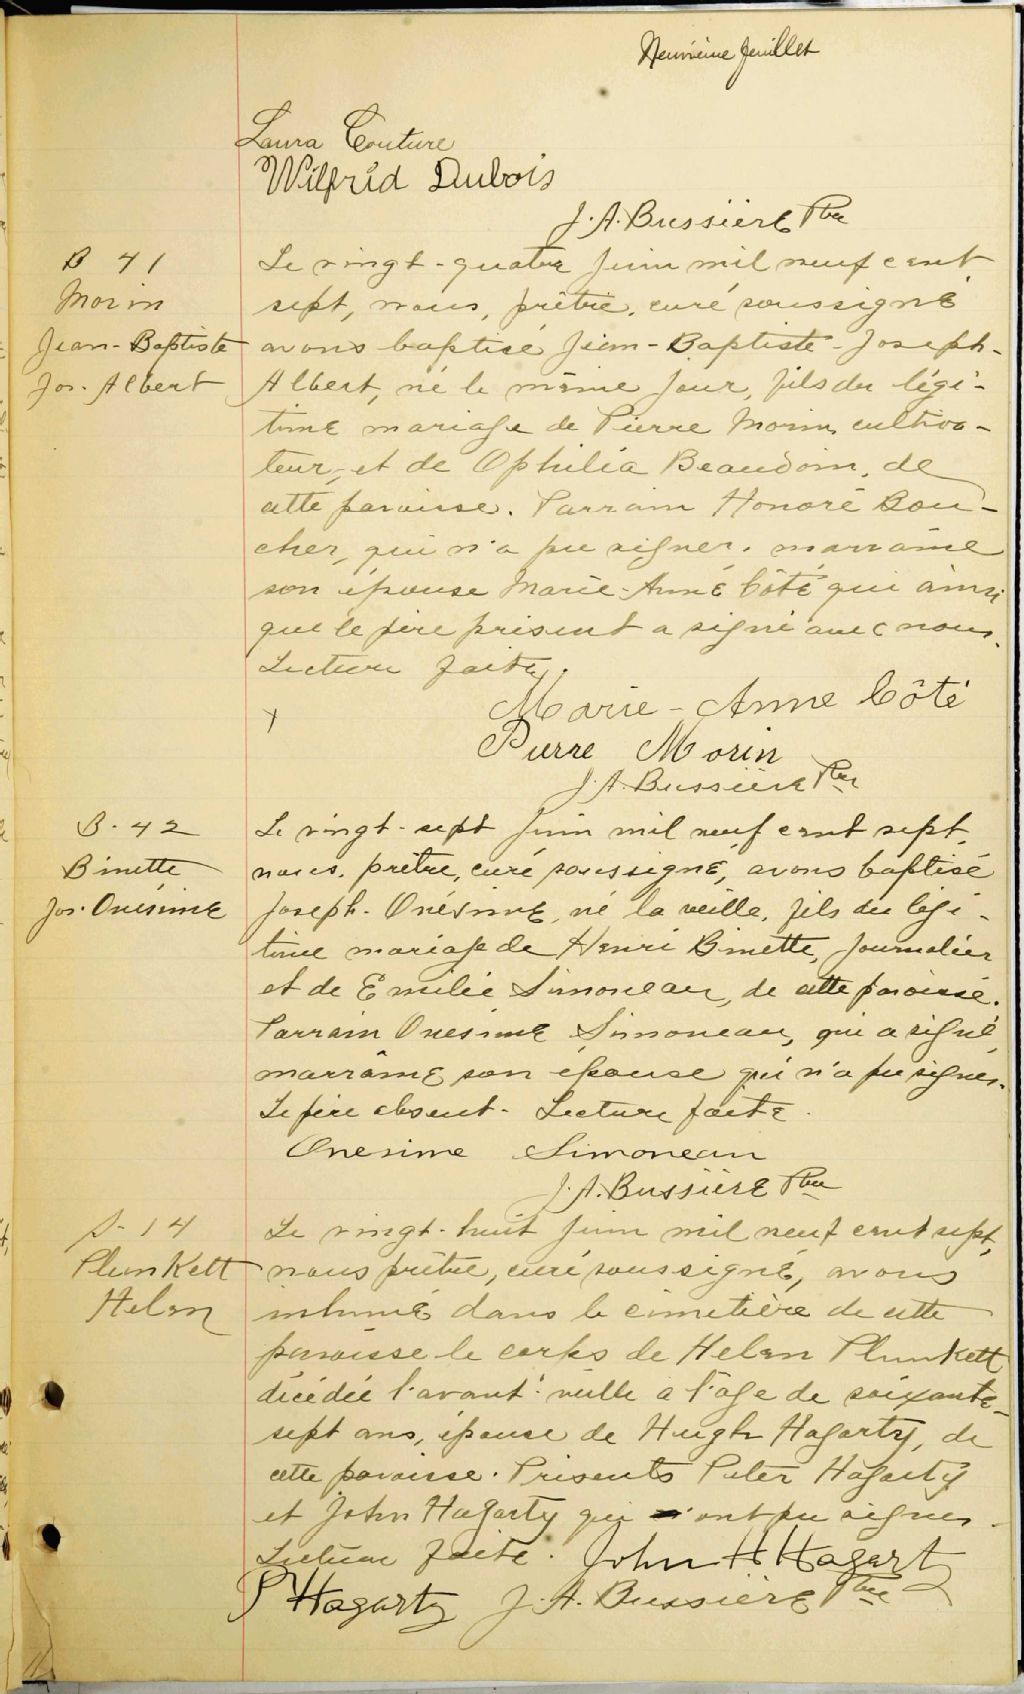 Neuvième feuillet
Laura Couture
Wilfrid Dubois
J. A. Bussière Ptre
B 41
Morin
Jean-Baptiste
Jos. Albert
Le vingt-quatre Juin mil neuf cent
sept, nous, prêtre, curé soussigné
avons baptisé Jean-Baptiste-Joseph-
Albert, né le même jour, fils du légi-
time mariage de Pierre Morin, cultiva-
teur, et de Ophilia Beaudoin, de
cette paroisse. Parrain Honoré Bou-
cher, qui n'a pu signer, marraine
son épouse Marie-Anne Côté qui ainsi
que le père présent a signé avec nous.
Lecture faite.
Marie-Anne Côté
Pierre Morin
J. A. Bussière Ptre
B. 42
Binette
Jos. Onésime
Le vingt-sept Juin mil neuf cent sept,
nous, prêtre, curé soussigné, avons baptisé
Joseph-Onésime, né la veille, fils du légi-
time mariage de Henri Binette, journalier
et de Emilie Simoneau, de cette paroisse.
Parrain Onésime Simoneau, qui a signé,
marraine son épouse qui n'a pu signer.
Le père absent. Lecture faite.
Onesime Simoneau
J. A. Bussière Ptre
S. 14
Plunkett
Helen
Le vingt-huit Juin mil neuf cent sept,
nous prêtre, curé soussigné, avons
inhumé dans le cimetière de cette
paroisse le corps de Helen Plunkett
décédée l'avant-veille a l'age de soixante-
sept ans, épouse de Hugh Hagarty, de
cette paroisse. Présents Peter Hagarty
et John Hagarty qui ont pu signer.
Lecture faite. John H Hagarty
P Hagarty J. A. Bussière Ptre